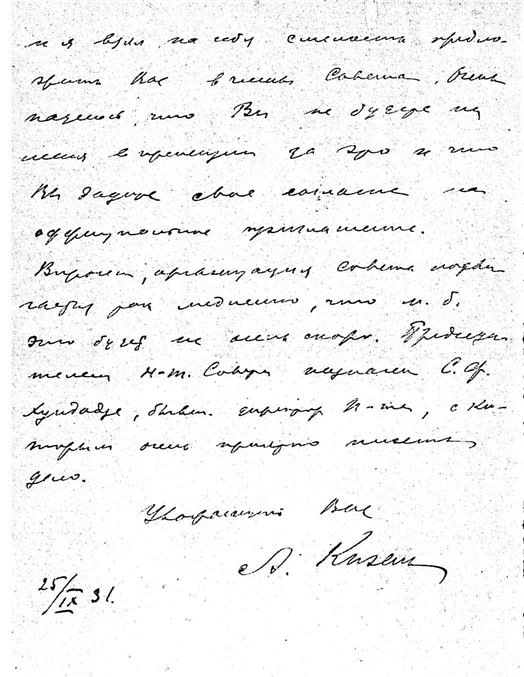 и я взял на себя смелость предло-
жить Вас в члены Совета. Очень
надеюсь, что Вы не будете на
меня в претензии за это и что
Вы дадите свое согласие на
официальное приглашение.
Впрочем, организация Совета подви
гается так медленно, что м. б.
это будет не очень скоро. Председа
телем Н-т. Совета назначен С. Ф.
бывш. директор И-та, с ко-
торым очень приятно иметь
дело.
Уважающий Вас
А. Кизель
25/IX 31.